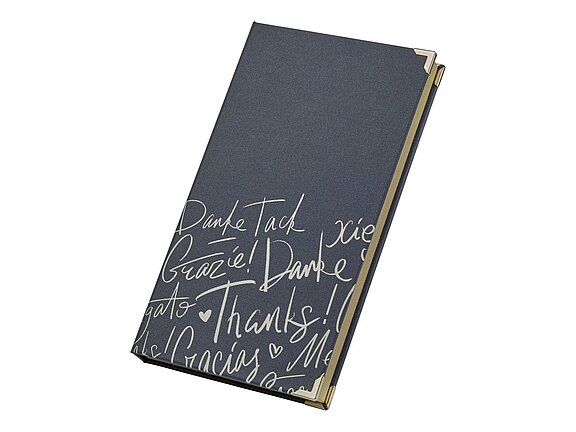 Danke Tack xie
Grazie! Danke
gato Thanks!
ks! Gracias Me